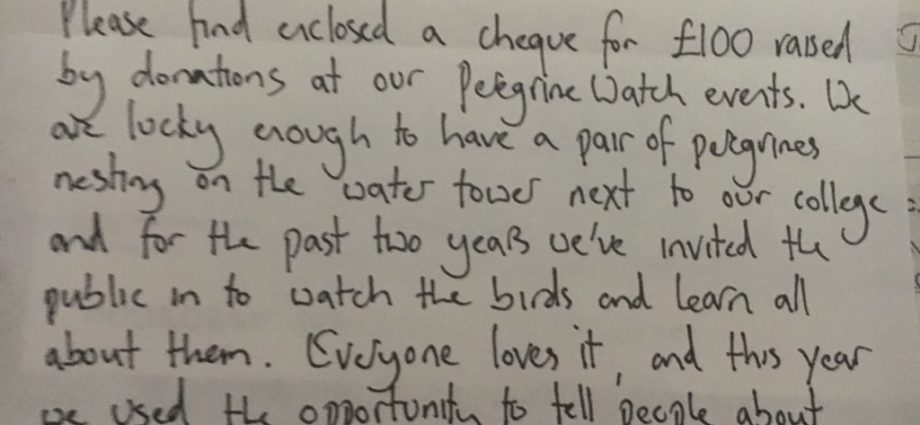 Please find enclosed a cheque for £100 raised
by donations at our Peregrine Watch events. We
are lucky enough to have a pair of peregrines
nesting on the water tower next to our college
and for the past two years we've invited the
public in to watch the birds and learn all
about them. Everyone loves it, and this year
we used the opportunity to tell people about